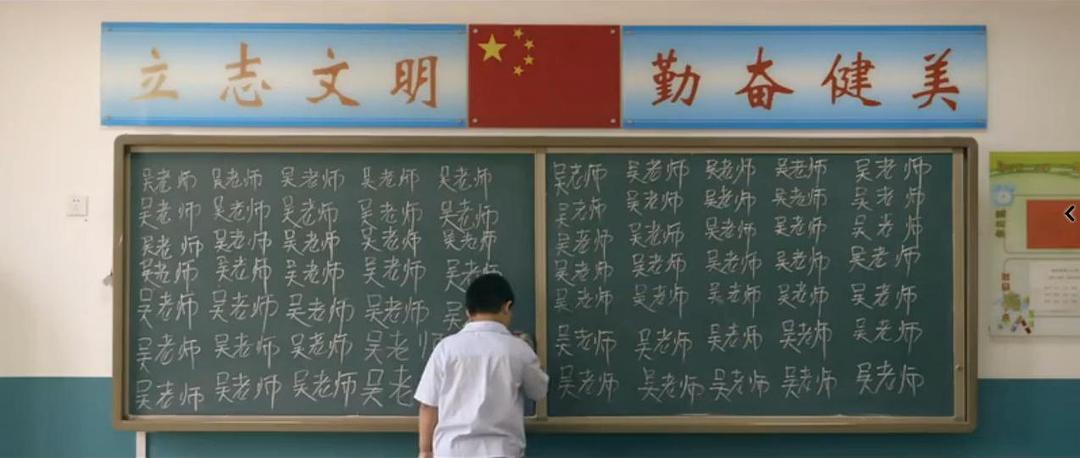 立志文明
勤奋健美
吴老师 吴老师 吴老师 吴老师 吴老师
吴老师 吴老师 吴老师 吴老师 吴老师
吴老师 吴老师 吴老师 吴老师 吴老师
吴老师 吴老师 吴老师 吴老师 吴老师
吴老师 吴老师 吴老师 吴老师 吴
吴老师 吴老师 吴老师 吴老师
吴老师 吴老师 吴老师 吴老
吴老师 吴老师 吴老师 吴老师 吴老师
吴老师 吴老师 吴老师 吴老师 吴老师
吴老师 吴老师 吴老师 吴老师 吴老师
吴老师 吴老师 吴老师 吴老师 吴老师
吴老师 吴老师 吴老师 吴老师 吴老师
吴老师 吴老师 吴老师 吴老师 吴老师
吴老师 吴老师 吴老师 吴老师 吴老师